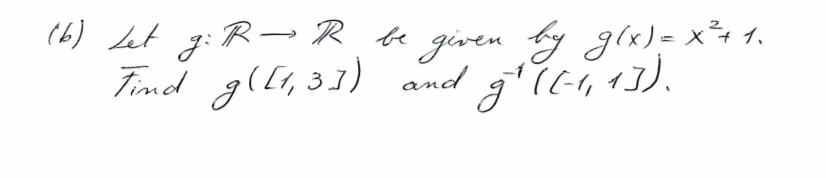 (b) Let g: ℝ → ℝ be given by g(x) = x² + 1.
Find g([1, 3]) and g⁻¹([-1, 1]).